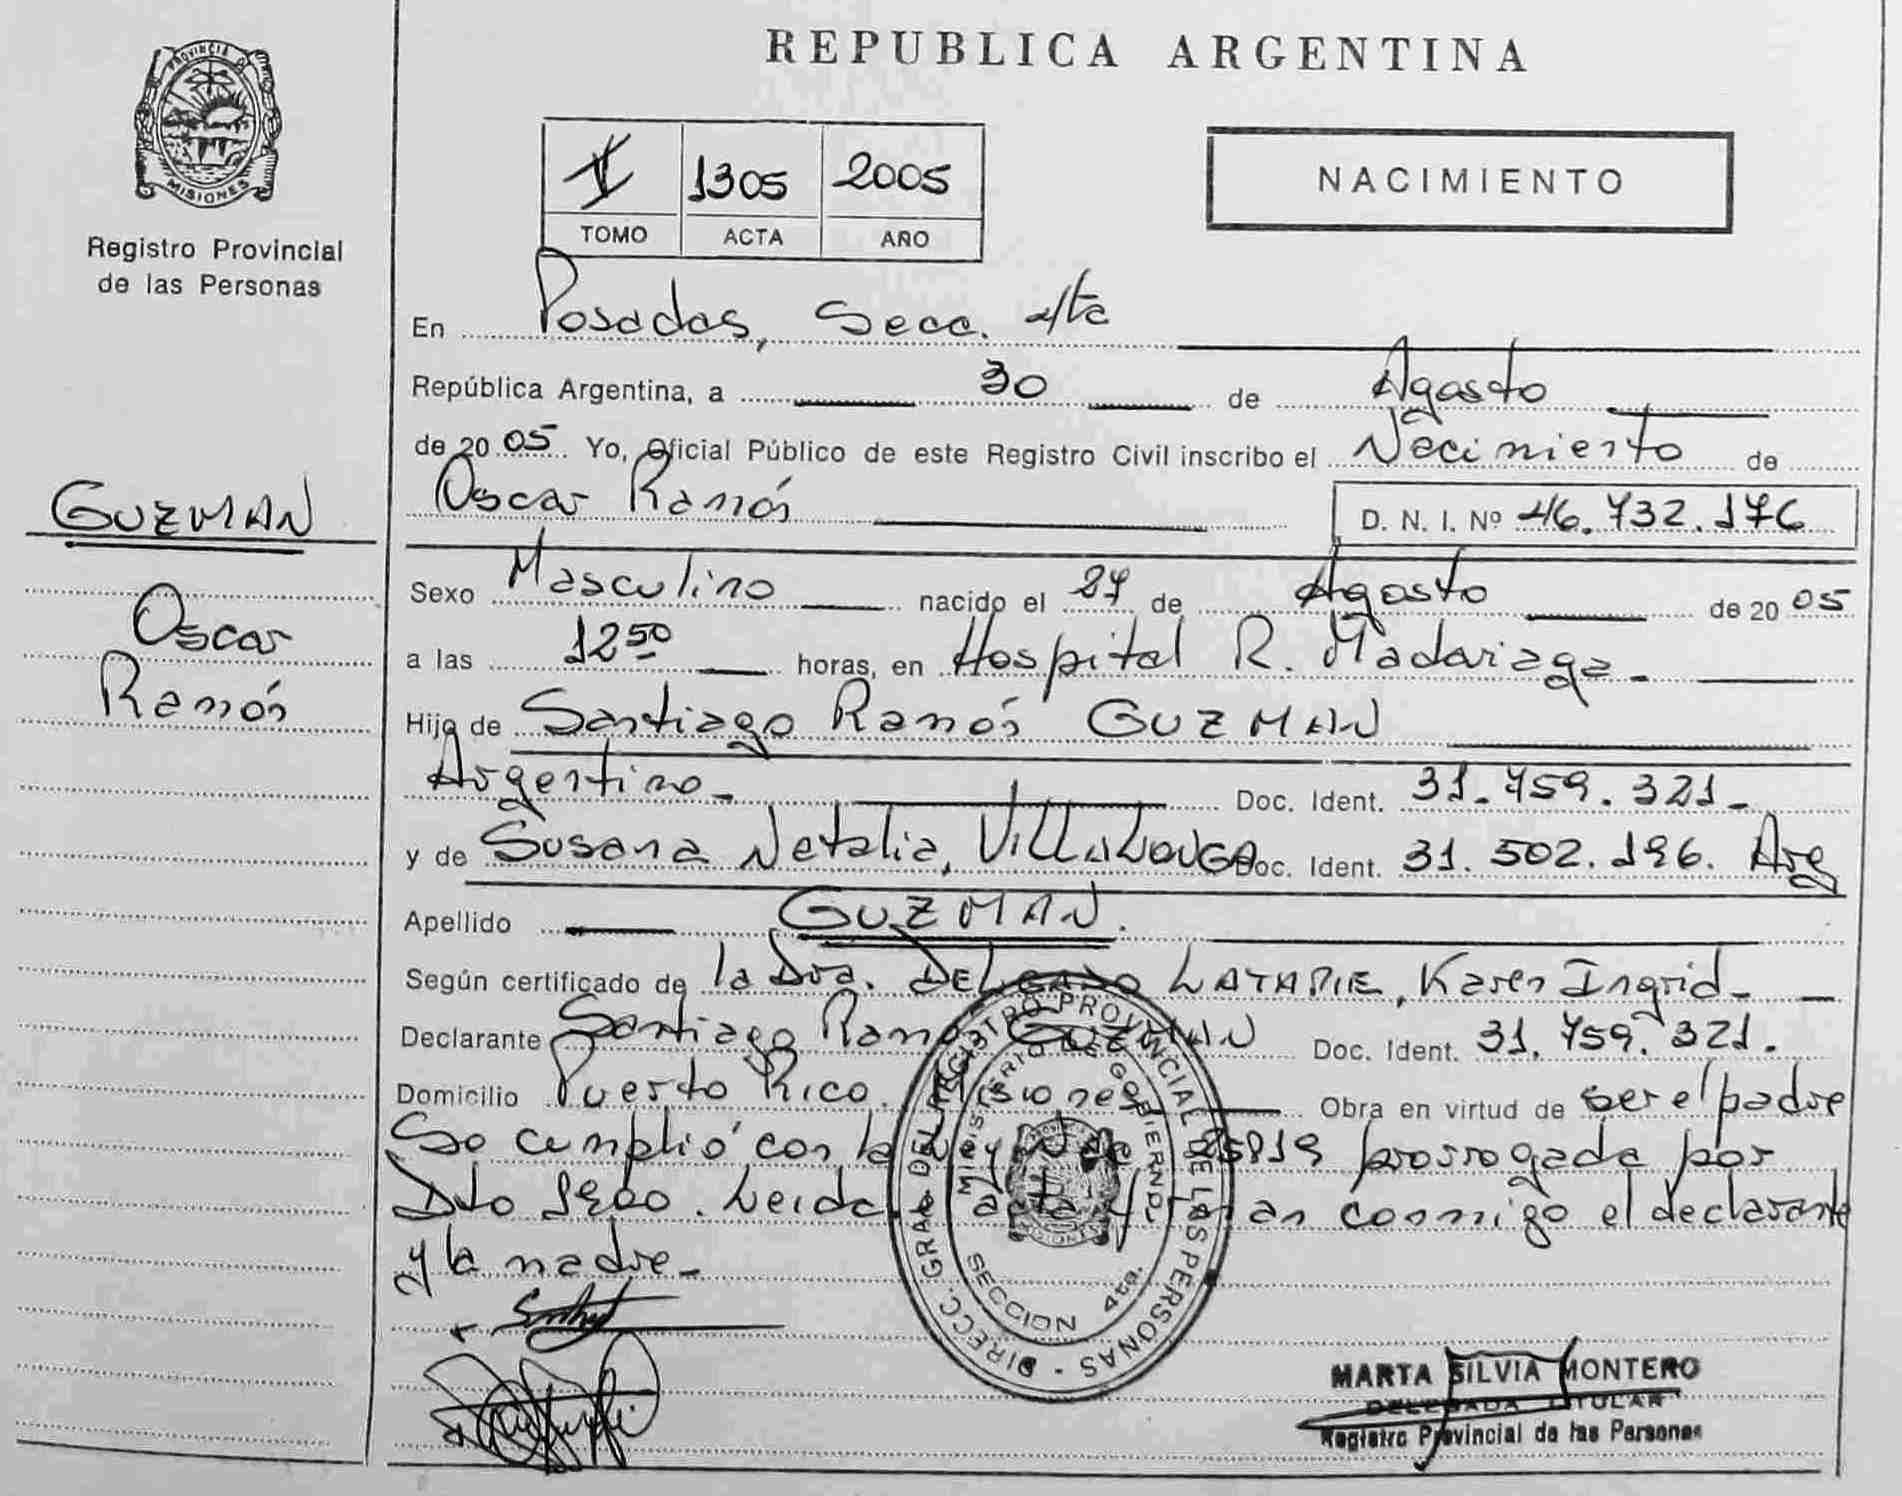 REPUBLICA ARGENTINA
PROVINCIA DE
MISIONES
Registro Provincial
de las Personas
1305 2005
TOMO ACTA AÑO
NACIMIENTO
En Posadas, Secc. 4ta
República Argentina, a 30 de Agosto
de 2005 Yo, Oficial Público de este Registro Civil inscribo el Nacimiento de
Oscar Ramón D. N. I. Nº 46.732.176
GUZMAN
Oscar
Ramón
Sexo Masculino nacido el 27 de Agosto de 2005
a las 12 50 horas, en Hospital R. Madariaga -
Hijo de Santiago Ramón GUZMAN
Argentino - Doc. Ident. 31.759.321 -
y de Susana Natalia, VILLALONGA Doc. Ident. 31.502.196. Arg
Apellido GUZMAN.
Según certificado de la Dra. DELGADO LATAPIE, Karen Ingrid -
Declarante Santiago Ramón GUZMAN Doc. Ident. 31.759.321.
Domicilio Puerto Rico. Misiones Obra en virtud de ser el padre
Se cumplió con la Ley Nº 25819 prorrogada por
Dto 1900. Leida el acta firman conmigo el declarante
y la madre -
DIRECC. GRAL DEL REGISTRO PROVINCIAL DE LAS PERSONAS -
MINISTERIO DE GOBIERNO
SECCION 4ta.
MARTA SILVIA MONTERO
DELEGADA TITULAR
Registro Provincial de las Personas